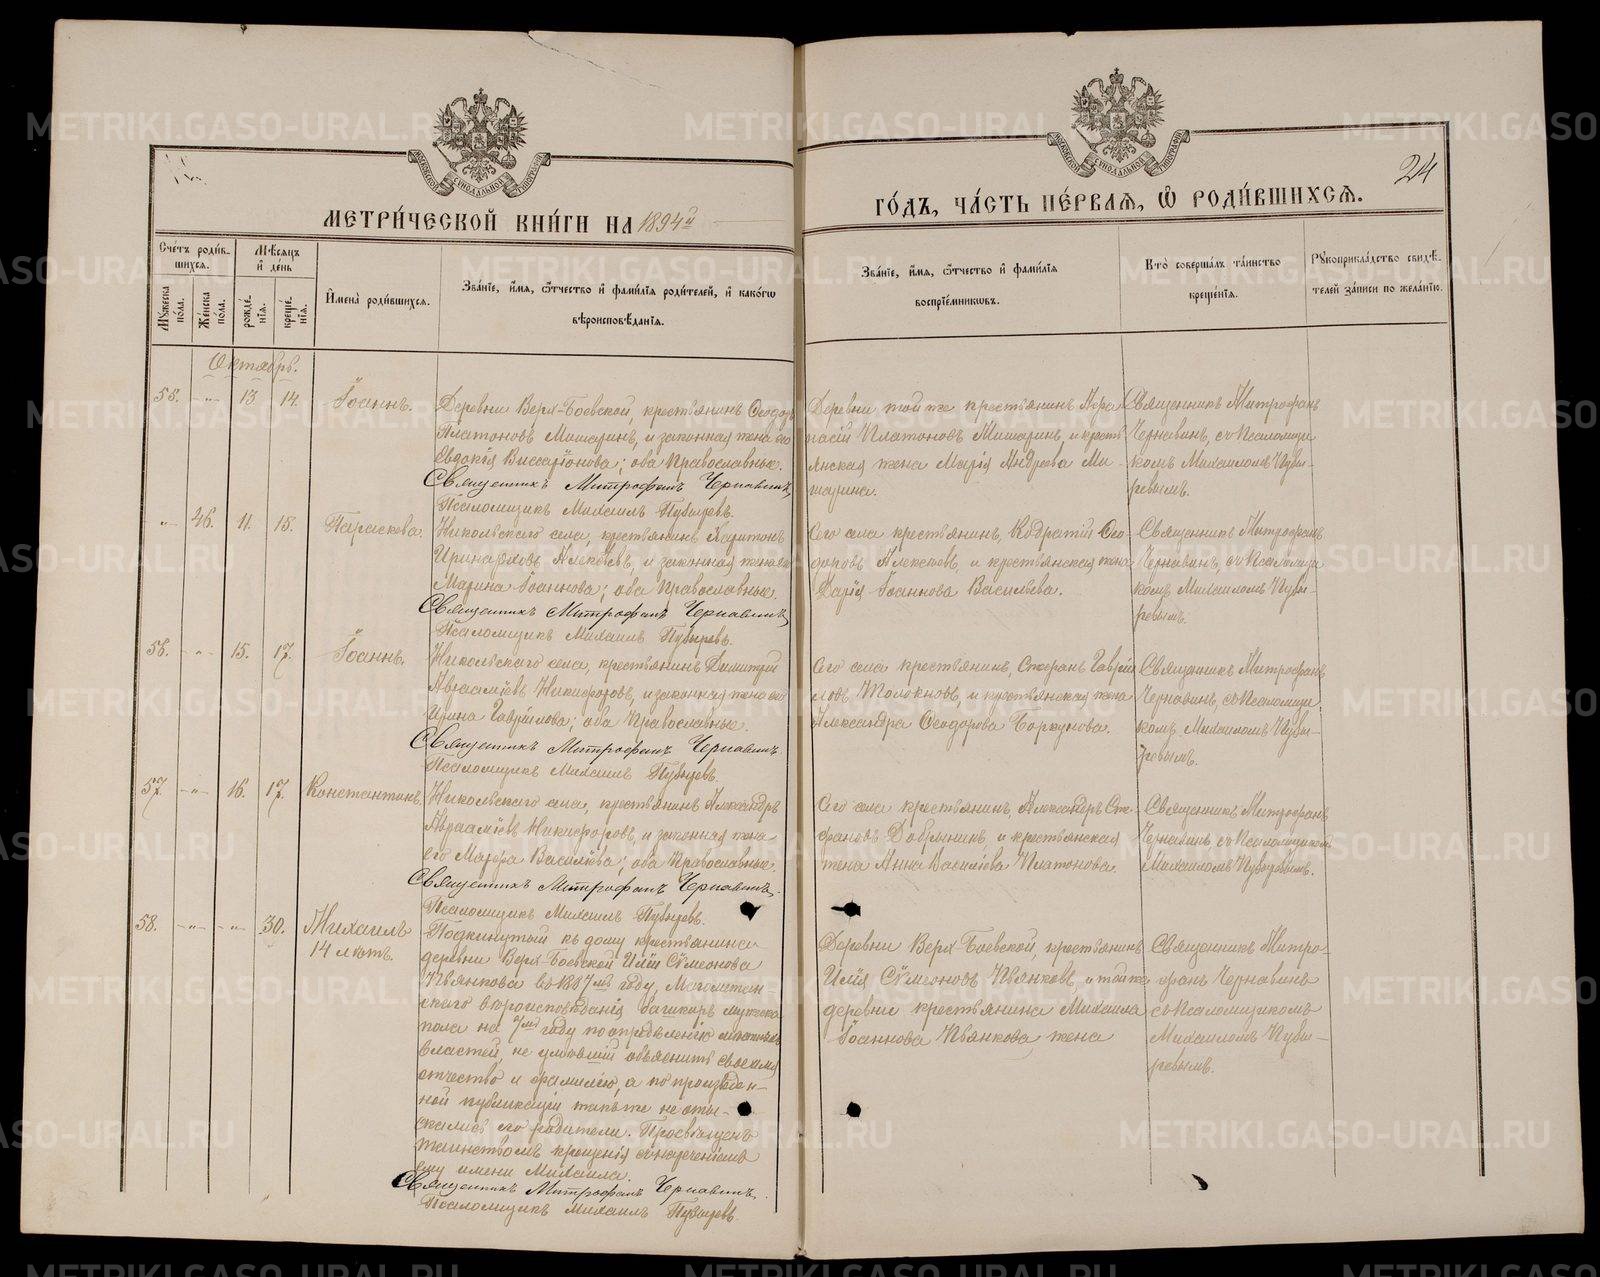 МЕТРИ́ЧЕСКОЙ КНИ́ГИ НА 1894й
ГО́ДЪ, ЧА́СТЬ ПЕ́РВАѦ, Ѽ РОДИ́ВШИХСѦ.
24
Сче́тъ роди́в-
шихсѧ.
Мѣ́сѧцъ
и҆ де́нь
Мꙋ́жеска по́ла.
Же́нска по́ла.
рожде́-нїѧ.
креще́-нїѧ.
И҆мена̀ роди́вшихсѧ.
Зва́нїе, и҆́мѧ, ѻ҆́тчество и҆ фами́лїѧ роди́телей, и҆ како́гѡ
вѣроисповѣ́данїѧ.
Зва́нїе, и҆́мѧ, ѻ҆́тчество и҆ фами́лїѧ
воспрїе́мникѡвъ.
Кто̀ соверша́лъ та́инство
креще́нїѧ.
Рꙋкоприкла́дство свидѣ́-
телей за́писи по жела́нїю.
Октябрь.
55. -"- 13 14. Іоаннъ.
Деревни Верх-Боевской, крестьянинъ Ѳеодоръ
Платоновъ Мишаринъ, и законная жена его
Евдокія Виссаріонова; оба Православные.
Священникъ Митрофанъ Чернавинъ
Псаломщикъ Михаилъ Пузыревъ.
Деревни той же крестьянинъ Аѳа
насій Платоновъ Мишаринъ, и кресть
янская жена Марія Андреева Ми-
шарина.
Священникъ Митрофанъ
Чернавинъ, съ Псаломщи
комъ Михаиломъ Пузы-
ревымъ.
-"- 46. 11. 15. Параскева.
Никольскаго села, крестьянинъ Харитонъ
Иринарховъ Алексѣевъ, и законная жена его
Марина Іоаннова; оба Православные.
Священникъ Митрофанъ Чернавинъ
Псаломщикъ Михаилъ Пузыревъ.
Сего села крестьянинъ, Кодратій Ѳео-
доровъ и крестьянская жена
Дарія Іоаннова Васильева.
Священникъ Митрофанъ
Чернавинъ, съ Псаломщи
комъ Михаиломъ Пузы-
ревымъ.
56. -"- 15. 17. Іоаннъ.
Никольскаго села, крестьянинъ Димитрій
Авраамiевъ Никифоровъ, и законная жена его
Ирина Гавріилова; оба Православные.
Священникъ Митрофанъ Чернавинъ.
Псаломщикъ Михаилъ Пузыревъ.
Сего села крестьянинъ, Стефанъ Гавріи
ловъ Толокновъ, и крестьянская жена
Александра Ѳеодорова Боркунова.
Священникъ Митрофанъ
Чернавинъ, съ Псаломщи
комъ Михаиломъ Пузы-
ревымъ.
57. -"- 16. 17. Константинъ.
Никольскаго села, крестьянинъ Александръ
Авраамiевъ Никифоровъ, и законная жена
его Марѳа Василіева; оба Православные.
Священникъ Митрофанъ Чернавинъ.
Псаломщикъ Михаилъ Пузыревъ.
Сего села крестьянинъ, Александръ Сте-
фановъ Добрынинъ, и крестьянская
жена Анна Василіева Платонова.
Священникъ Митрофанъ
Чернавинъ съ Псаломщикомъ
Михаиломъ Пузыревымъ.
58. -"- -"- 30. Михаилъ
14 лѣтъ.
Подкинутый къ дому крестьянина
деревни Верх-Боевской Иліи Сѵмеонова
Пьянкова въ 1887мъ году, Магометан-
скаго вѣроисповѣданія башкиръ мужеска
пола на 7мъ году по опредѣленію
властей, не умѣвшій объяснить своего
отчество и фамилію, а по произведен-
ной публикаціи также не оты-
скались его родители. Просвѣщенъ
таинствомъ крещенія съ нареченіемъ
ему имени Михаила.
Священникъ Митрофанъ Чернавинъ.
Псаломщикъ Михаилъ Пузыревъ.
Деревни Верх-Боевской, крестьянинъ
Илія Сѵмеоновъ Пьянковъ, и той же
деревни крестьянина Михаила
Іоаннова Пьянкова жена
Священникъ Митро-
фанъ Чернавинъ
съ Псаломщикомъ
Михаиломъ Пузы-
ревымъ.
METRIKI.GASO-URAL.RU